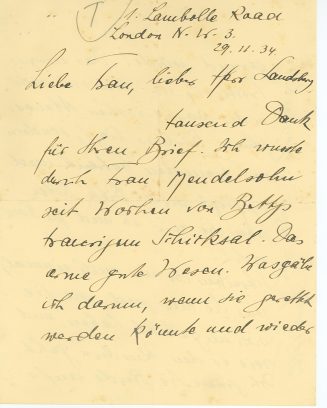 1. Lambolle Road
London N.W. 3.
29.11.34.
Liebe Frau, lieber Herr Landsberg,
tausend Dank
für Ihren Brief. Ich wusste
durch Frau Mendelsohn
seit Wochen von Bettys
traurigem Schicksal. Das
arme gute Wesen. Was gäbe
ich darum, wenn sie gerettet
werden könnte und wieder